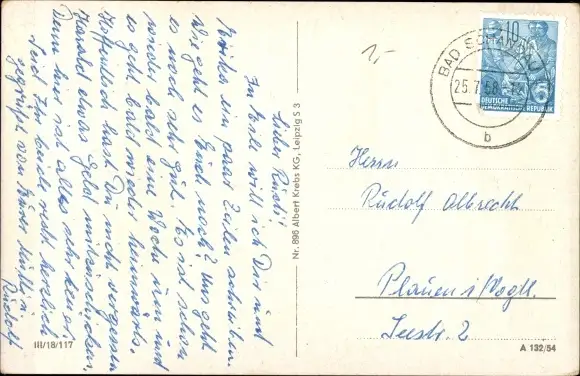 Lieber Rudi!
In Kröll will ich Dir und
ein paar Zeilen schreiben.
Wie geht es Euch noch? Uns geht
es noch sehr gut. Es ist schon
wieder bald eine Woche um und
es geht bald wieder heimwärts.
Hoffentlich hast Du nicht vergessen
Harald etwas Geld mitzuschicken,
Denn hier ist alles sehr teuer.
Seid Ihr beide recht herzlich
gegrüßt von Eurer Mutti u.
Rudolf
III/18/117
Nr. 896 Albert Krebs KG, Leipzig S 3
1,-
BAD SCHANDAU
25.7.58
b
10
DEUTSCHE
DEMOKRATISCHE REPUBLIK
5
Herrn
Rudolf Albrecht
Plauen i/Vogtl.
Seestr. 2
A 132/54